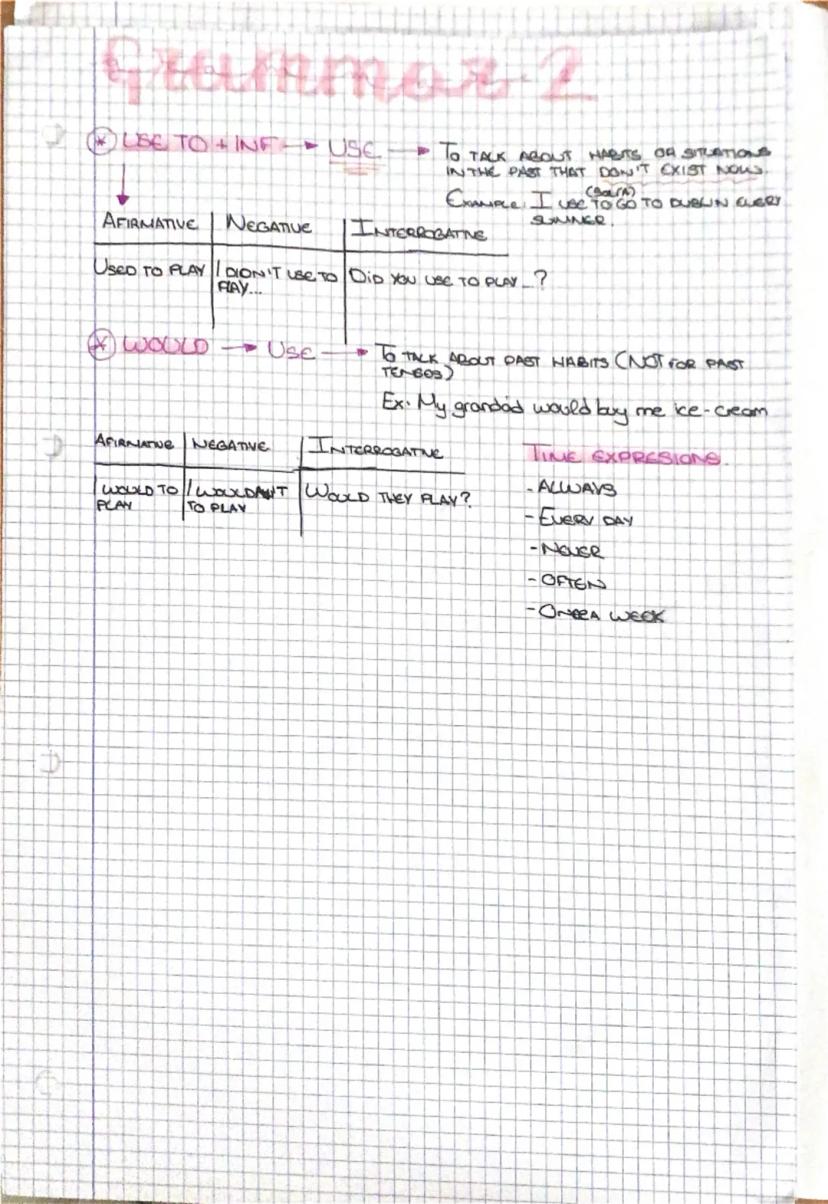 Grammar-2
* USE TO + INF → USE → To TALK ABOUT HABITS OR SITUATIONS
IN THE PAST THAT DON'T EXIST NOW.
(Solía)
EXAMPLE: I USE TO GO TO DUBLIN EVERY
SUMMER.
AFIRMATIVE NEGATIVE INTERROGATIVE
USED TO PLAY I DIDN'T USE TO DID YOU USE TO PLAY...?
PLAY...
* WOULD → USE → To TALK ABOUT PAST HABITS (NOT FOR PAST
TENSES)
Ex. My grandad would buy me ice-cream
AFIRMATIVE NEGATIVE INTERROGATIVE TIME EXPRESIONS.
I WOULD TO I WOULDN'T WOULD THEY PLAY? - ALWAYS
PLAY TO PLAY
- EVERY DAY
- NEVER
- OFTEN
- ONCE A WEEK